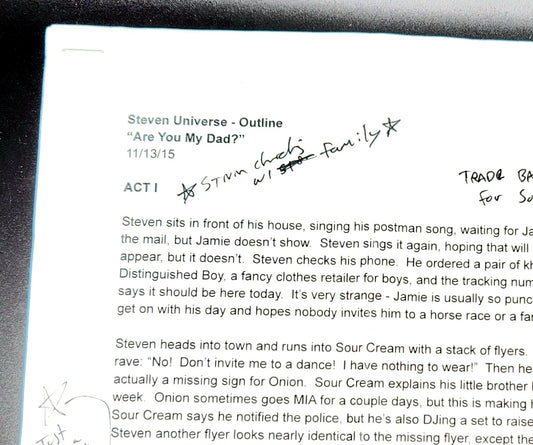 Steven Universe - Outline
"Are You My Dad?"
11/13/15
family
TRADE BA
for So
ACT I
Steven sits in front of his house, singing his postman song, waiting for Ja
the mail, but Jamie doesn't show. Steven sings it again, hoping that will
appear, but it doesn't. Steven checks his phone. He ordered a pair of kh
Distinguished Boy, a fancy clothes retailer for boys, and the tracking num
says it should be here today. It's very strange - Jamie is usually so punc
get on with his day and hopes nobody invites him to a horse race or a fan
Steven heads into town and runs into Sour Cream with a stack of flyers.
rave: "No! Don't invite me to a dance! I have nothing to wear!" Then he
actually a missing sign for Onion. Sour Cream explains his little brother
week. Onion sometimes goes MIA for a couple days, but this is making
Sour Cream says he notified the police, but he's also DJing a set to raise
Steven another flyer looks nearly identical to the missing flyer, except the